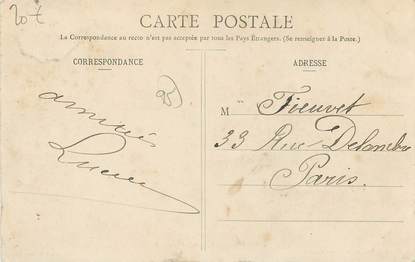 20f
CARTE POSTALE
La Correspondance au recto n'est pas acceptée par tous les Pays Étrangers. (Se renseigner à la Poste.)
CORRESPONDANCE
amitiés
Lucien
ADRESSE
M Fieuvet
33 Rue Delambre
Paris.